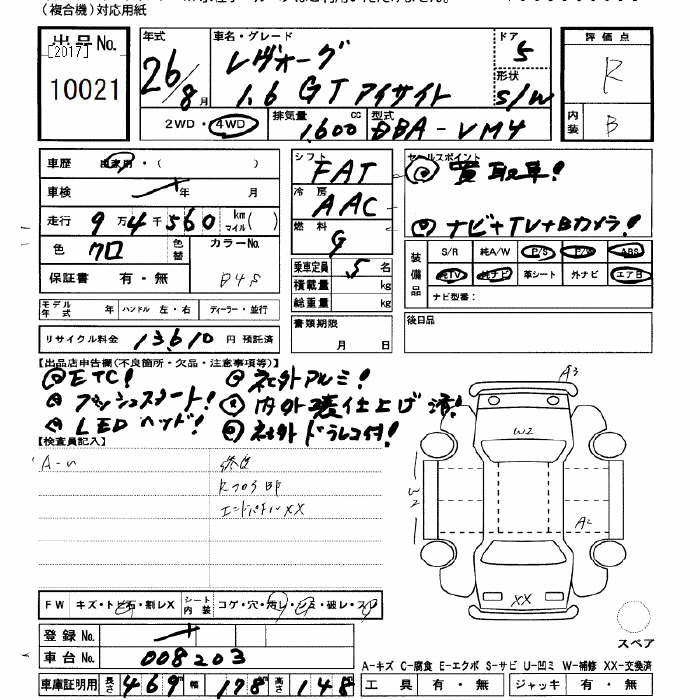 (複合機)対応用紙
出品No.
[2017]
10021
年式
26/8月
車名・グレード
レヴォーグ
1.6 GT アイサイト
ドア
5
形状
S/W
評価点
R
内装
B
2WD・4WD
排気量
1,600cc
型式
DBA-VM4
車歴 自家用・( )
車検 年 月
走行 9万4千560 km マイル( )
色 クロ
色替
カラーNo.
D4S
保証書 有・無
シフト
FAT
冷房
AAC
燃料
G
乗車定員 5名
積載量 kg
総重量 kg
セールスポイント
◎買取車!
◎ナビ+TV+Bカメラ!
装備品
S/R 純A/W P/S P/W ABS
純TV 純ナビ 革シート 外ナビ エアB
ナビ型番:
モデル年式 年 ハンドル 左・右 ディーラー・並行
リサイクル料金 13,610 円 預託済
書類期限
月 日
後日品
【出品店申告欄(不良箇所・欠品・注意事項等)】
◎ETC! ◎社外アルミ!
◎プッシュスタート! ◎内外装仕上げ済!
◎LEDヘッド! ◎社外ドラレコ付!
【検査員記入】
修復
Rフロア部
エンドパネルXX
A3
W2
W2
A2
XX
スペア
FW キズ・トビ石・割レX
シート内装 コゲ・穴・汚レ・シミ・破レ・スレ
登録No.
車台No. 008203
車庫証明用 長さ 469 幅 178 高さ 148
A-キズ C-腐食 E-エクボ S-サビ U-凹ミ W-補修 XX-交換済
工具 有・無 ジャッキ 有・無